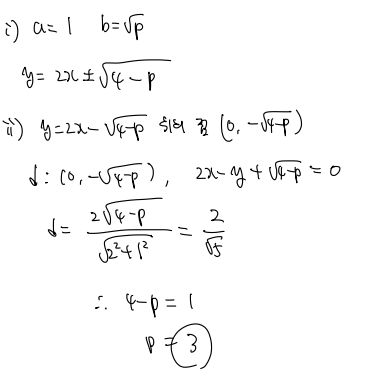 i) a=1 b=√p
y= 2x ± √4-p
ii) y=2x-√4-p 위의 점 (0, -√4-p)
d : (0, -√4-p), 2x-y+√4-p=0
d= 2√4-p / √2²+1² = 2/√5
∴ 4-p=1
p=3